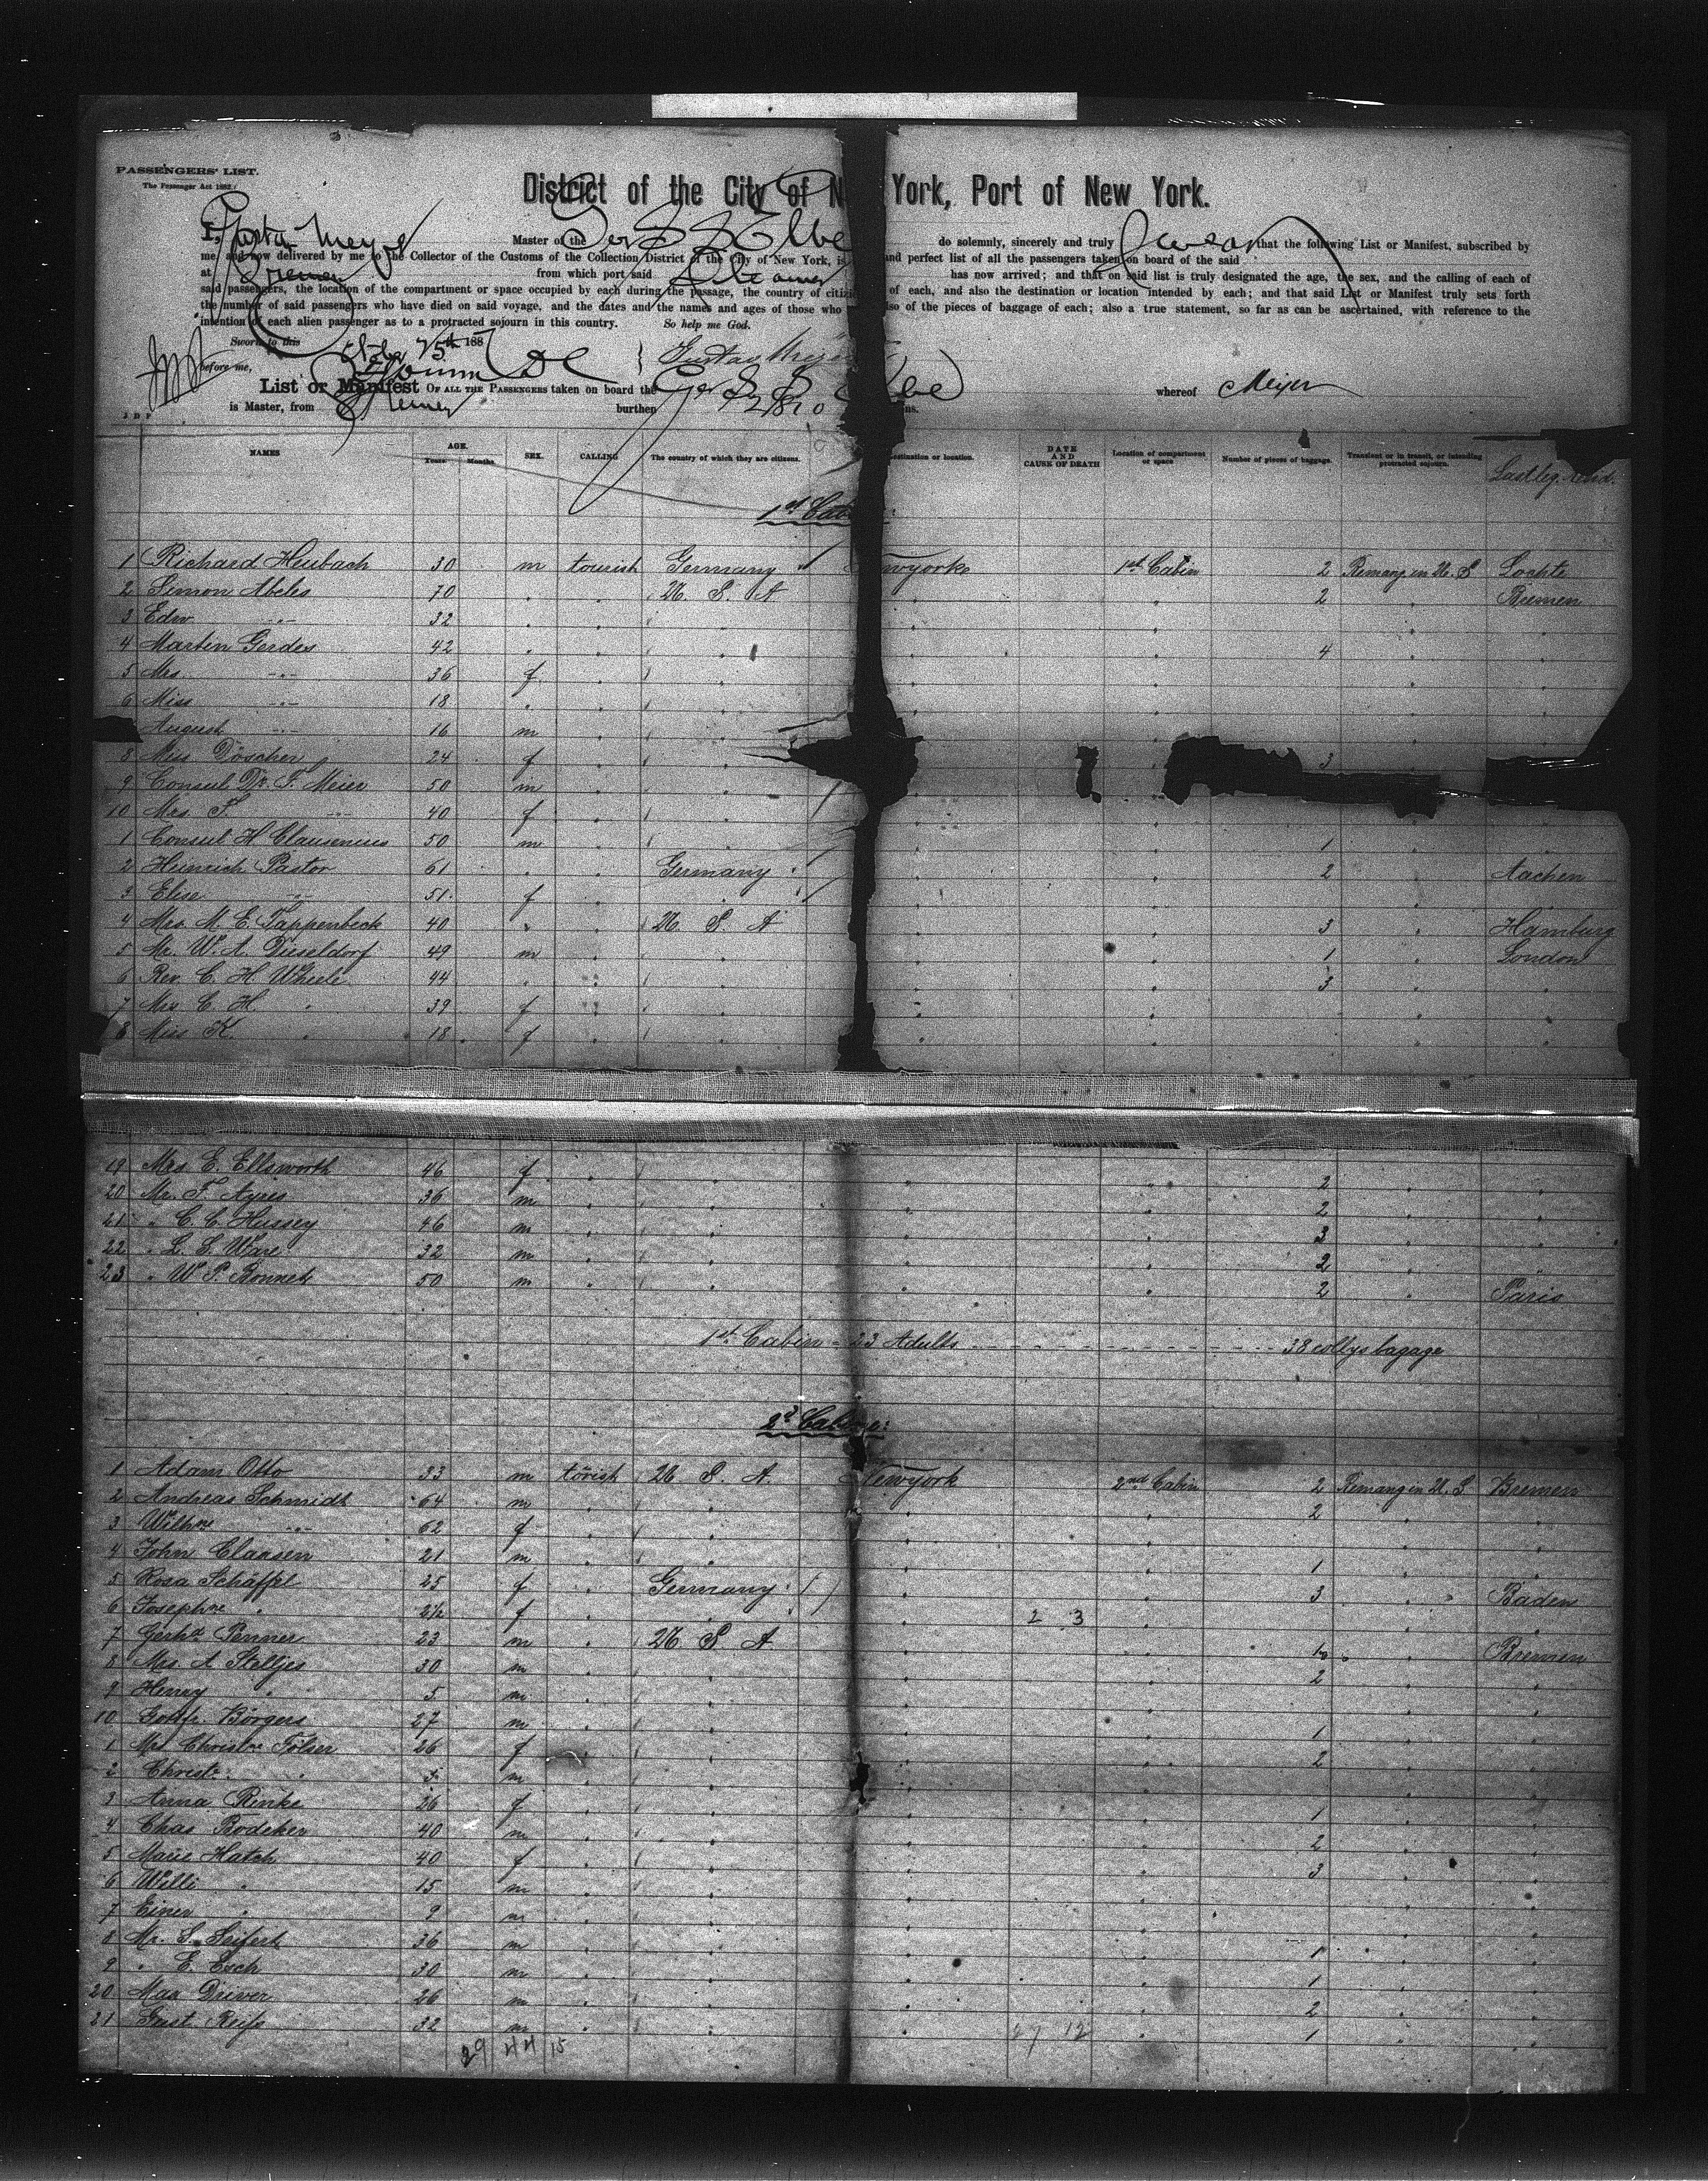 PASSENGERS' LIST.
The Passenger Act 1882.
District of the City of N York, Port of New York.
I, Gustav Meyer Master of the Ger S S Elbe do solemnly, sincerely and truly swear that the following List or Manifest, subscribed by
me, and now delivered by me to the Collector of the Customs of the Collection District of the City of New York, is and perfect list of all the passengers taken on board of the said
at Bremen from which port said Steamer has now arrived; and that on said list is truly designated the age, the sex, and the calling of each of
said passengers, the location of the compartment or space occupied by each during the passage, the country of citiz of each, and also the destination or location intended by each; and that said List or Manifest truly sets forth
the number of said passengers who have died on said voyage, and the dates and the names and ages of those who also of the pieces of baggage of each; also a true statement, so far as can be ascertained, with reference to the
intention of each alien passenger as to a protracted sojourn in this country. So help me God.
Sworn to this 25th 188
before me, Gustav Meyer
List or Manifest OF ALL THE PASSENGERS taken on board the Ger S S Elbe whereof Meyer
is Master, from Bremen burthen tons.
J D P
NAMES AGE. Years Months SEX. CALLING The country of which they are citizens. destination or location. DATE AND CAUSE OF DEATH Location of compartment or space Number of pieces of baggage. Transient or in transit, or intending protracted sojourn. Last leg. resid.
1st Cab
1 Richard Heubach 30 m tourist Germany wyorke 1st Cabin 2 Remang in U. S Lochte
2 Simon Abeles 70 U. S. A 2 Bremen
3 Edw -"- 32
4 Martin Gerdes 42 4
5 Mrs -"- 36 f
6 Miss -"- 18
August -"- 16 m
8 Miss Döscher 24 f 3
9 Consul Dr. F. Meier 50 m
10 Mrs. F. -"- 40 f
1 Consul H Claussenius 50 m 1
2 Heinrich Pastor 61 Germany 2 Aachen
3 Elise -"- 51 f
4 Mrs. M. E. Tappenbeck 40 U. S. A 3 Hamburg
5 Mr. W. A. Düseldorf 49 m 1 London
6 Rev. C. H. Wheele 44 3
7 Mrs C. H. " 39 f
8 Miss K. " 18 f
19 Mrs. E. Ellsworth 46 f 2
20 Mr. F. Ayres 36 m 2
21 " C. C. Hussey 46 m 3
22 " L. L. Ware 32 m 2
23 " W. P. Bonnet 50 m 2 Paris
1st Cabin = 23 Adults 38 collys bagage
2d Cabine:
1 Adam Otto 33 m törist U. S. A. Newyork 2nd Cabin 2 Remang in U. S. Bremen
2 Andreas Schmidt 64 m 2
3 Wilhne -"- 62 f
4 John Claasen 21 m 1
5 Rosa Schäffel 25 f Germany 3 Baden
6 Josephne " 2½ f 2 3
7 Gerhd Penner 23 m U. S. A 1 Bremen
8 Mrs. A Stelljes 30 m 2
9 Henry " 5 m
10 Gottfr Börgers 27 m 1
1 Mrs Christne Fölser 26 f 2
2 Christ. " 5 m
3 Anna Rinke 26 f 1
4 Chas Bodeker 40 m 2
5 Marie Hatch 40 f 3
6 Willi " 15 m
7 Einer " 9 m
8 Mr. S. Seifert 36 m 1
9 " E. Esch 30 m 1
20 Max Driver 26 m 2
21 Gust. Reifs 32 m 27 12 1
29 44 15